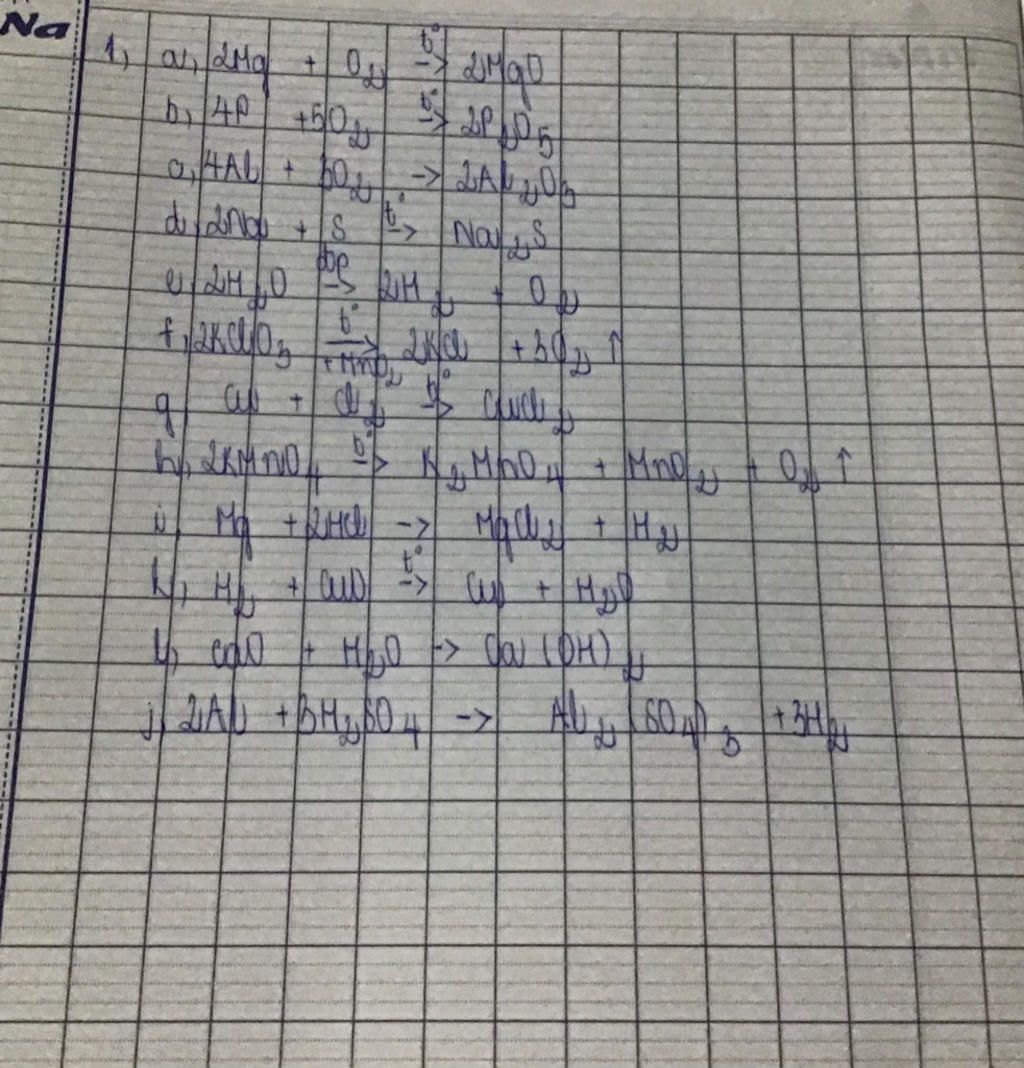 Na
1, a, 2Mg + O₂ t°→ 2MgO
b, 4P + 5O₂ t°→ 2P₂O₅
c, 4Al + 3O₂ → 2Al₂O₃
d, 2Na + S t°→ Na₂S
e, 2H₂O đp→ 2H₂ + O₂
f, 2KClO₃ t°→ +MnO₂ 2KCl + 3O₂ ↑
g, Cu + Cl₂ t°→ CuCl₂
h, 2KMnO₄ t°→ K₂MnO₄ + MnO₂ + O₂ ↑
i, Mg + 2HCl → MgCl₂ + H₂
k, H₂ + CuO t°→ Cu + H₂O
y, CaO + H₂O → Ca(OH)₂
j, 2Al + 3H₂SO₄ → Al₂(SO₄)₃ + 3H₂